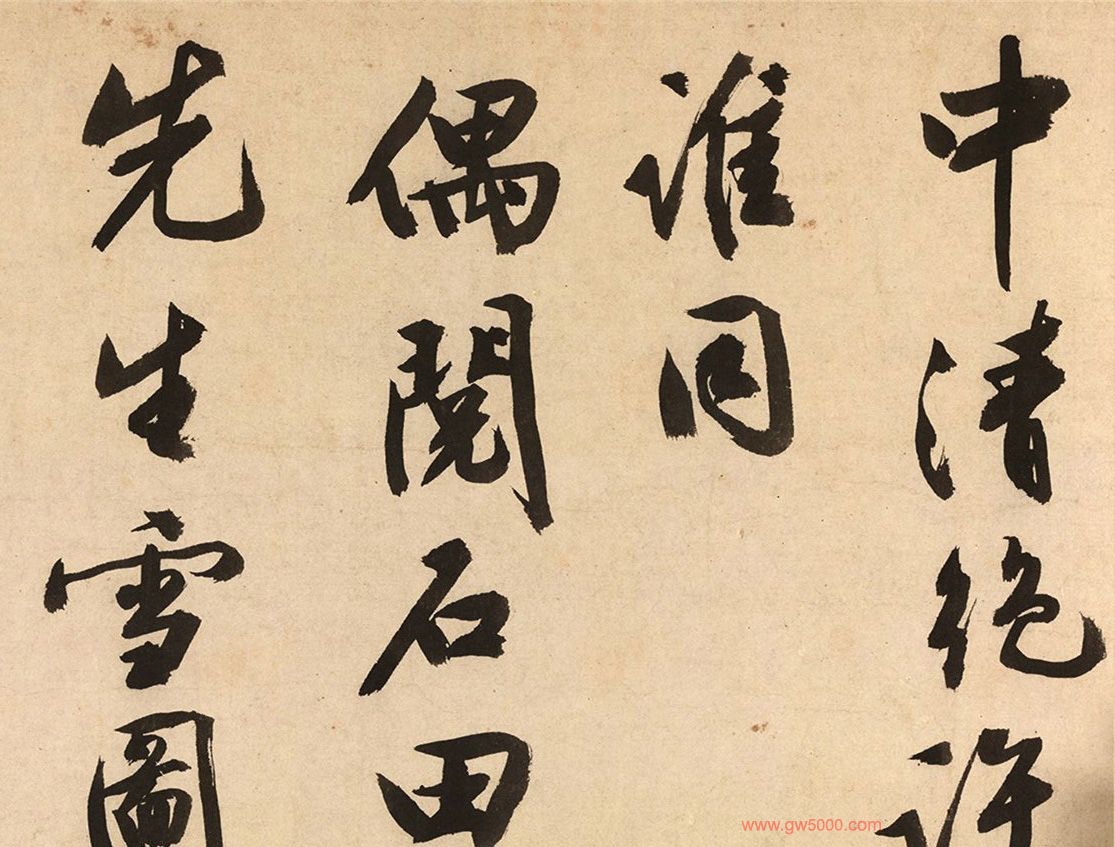 中清絶許
誰同
偶閲石田
先生雪圖
www.gw5000.com